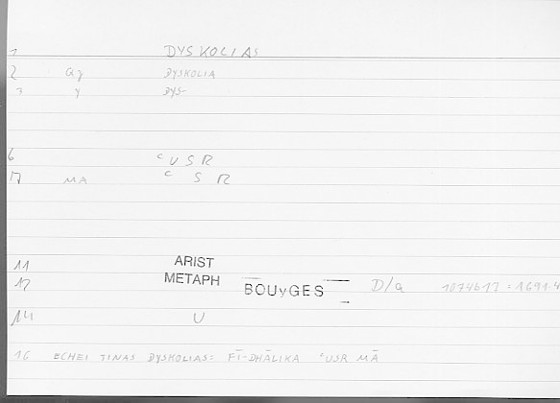 1 DYSKOLIAS
2 Qγ DYSKOLIA
3 γ DYS-
6 ᶜUSR
17 MA ᶜ S R
11 ARIST
12 METAPH BOUyGES D/a 1074b17 = 1691.4
14 U
16 ECHEI TINAS DYSKOLIAS: FĪ-DHĀLIKA ᶜUSR MĀ